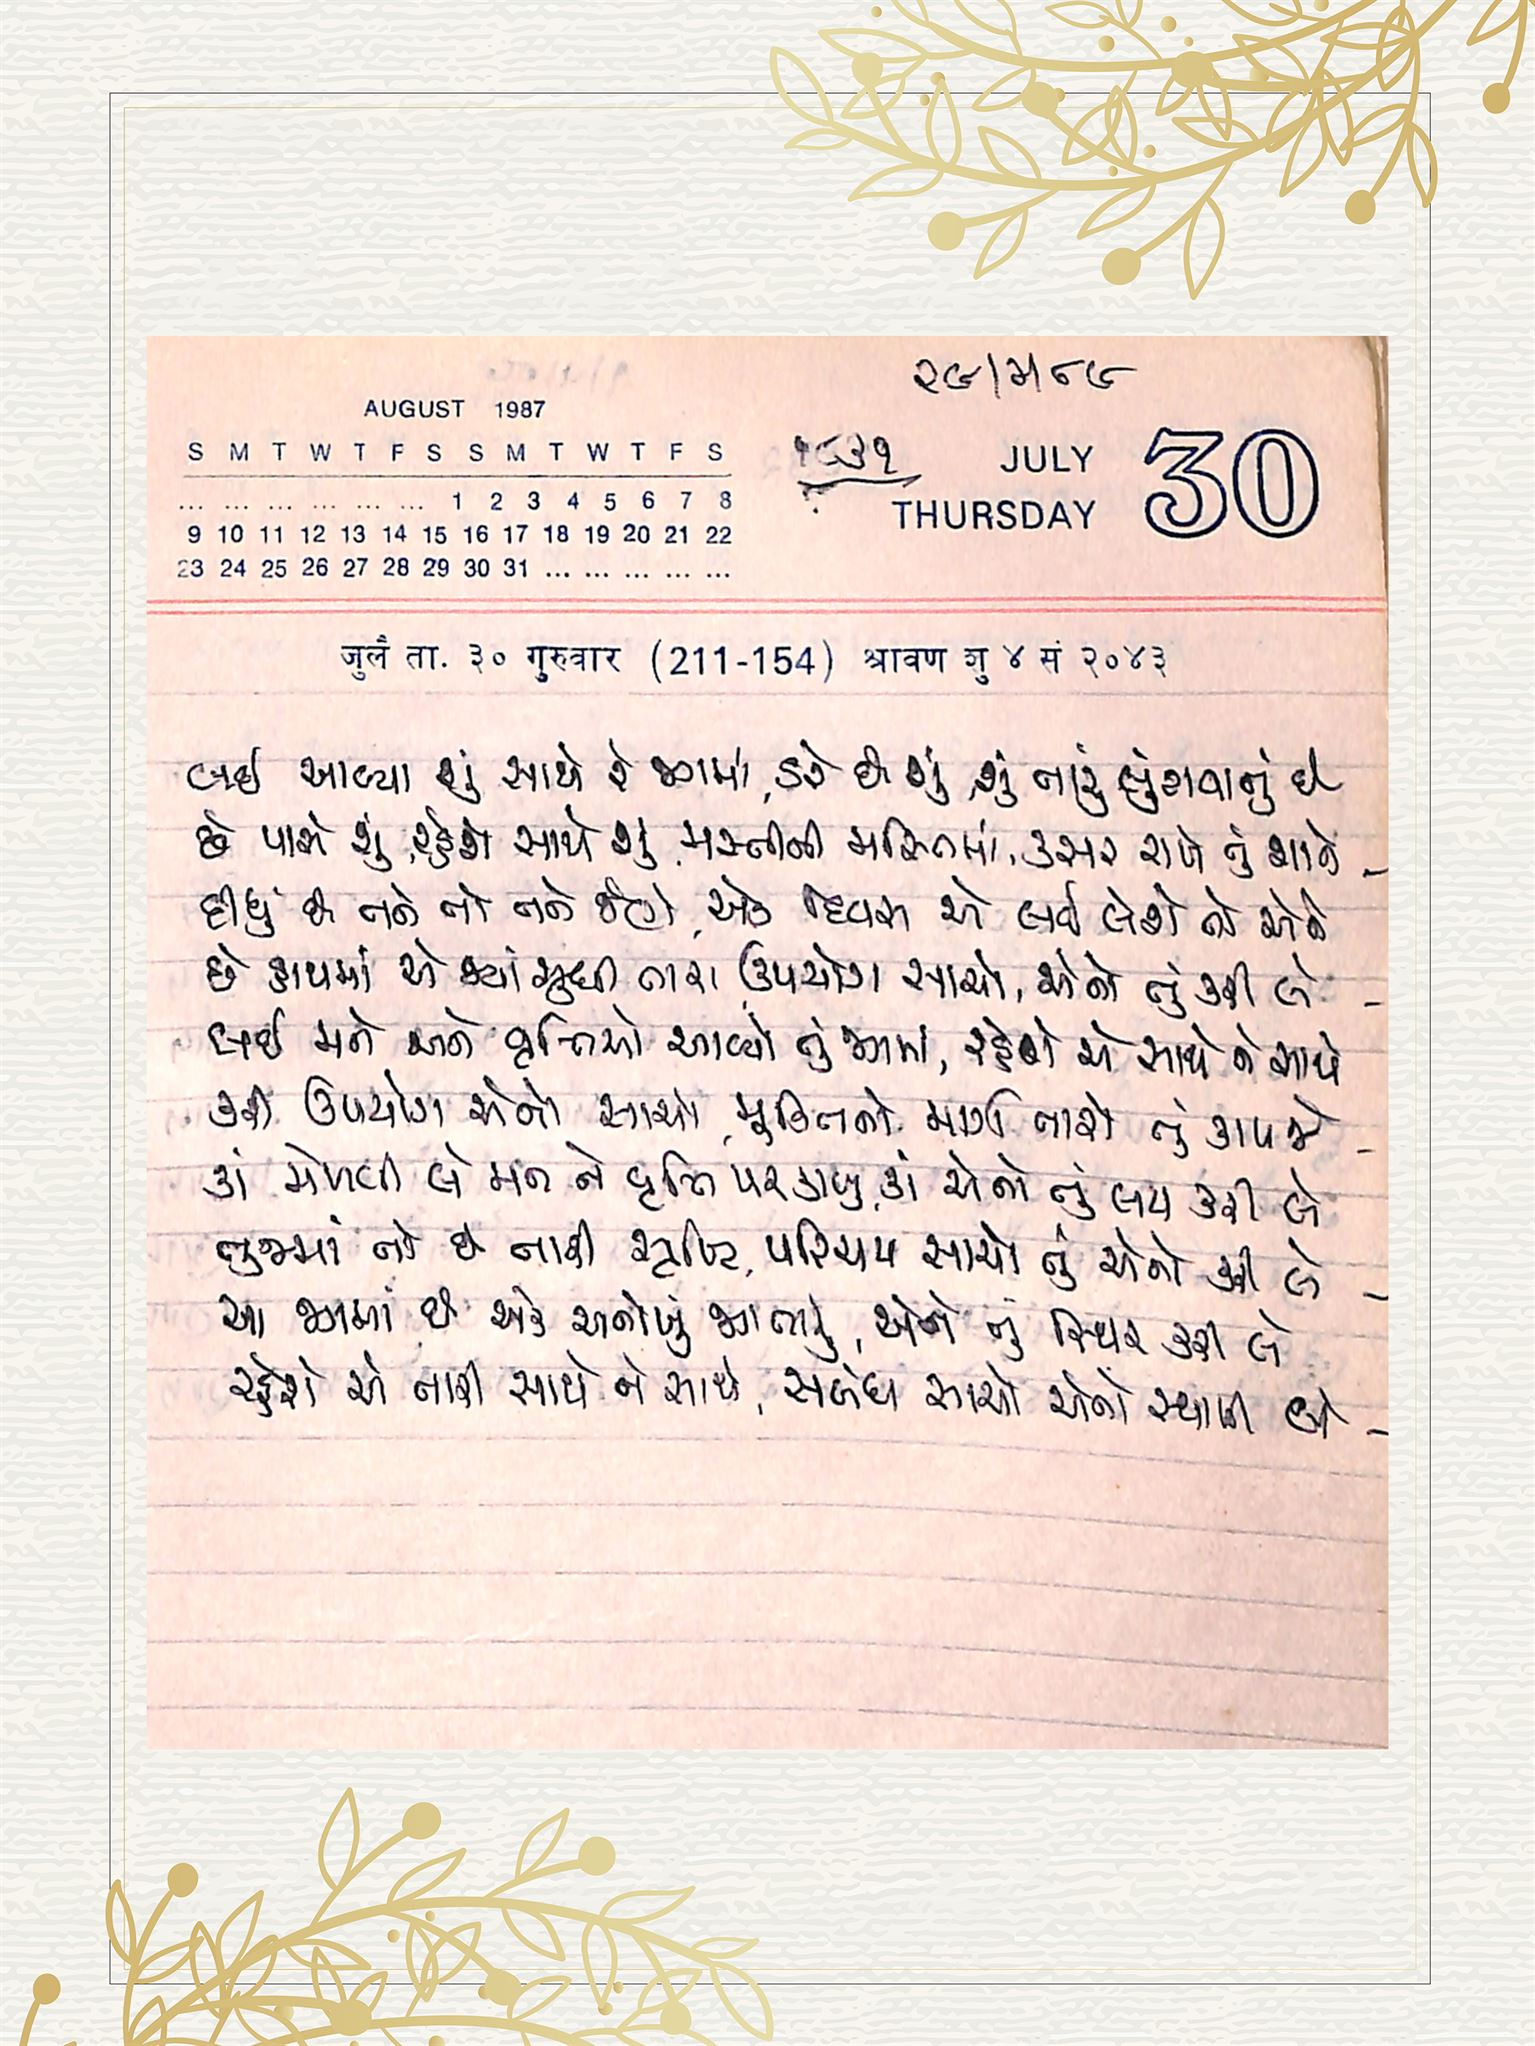 ૨૯/૫/૮૯
AUGUST 1987
S M T W T F S S M T W T F S
... ... ... ... ... ... 1 2 3 4 5 6 7 8
9 10 11 12 13 14 15 16 17 18 19 20 21 22
23 24 25 26 27 28 29 30 31 ... ... ... ... ...
૧૮૩૧
JULY 30
THURSDAY
जुलै ता. ३० गुरुवार (211-154) श्रावण शु ४ सं २०४३
લઈ આવ્યા શું સાથે રે જગમાં, ડરે છે શું, શું તારું લુંટાવાનું છે
છે પાસે શું, રહેશે સાથે શું, મસ્તીની મસ્તિમાં, કસર રાખે તું શાને -
દીધું છે તને તો તને જેણે, એક દિવસ એ લઈ લેશે તો એને
છે હાથમાં એ જ્યાં સુધી તારા, ઉપયોગ સાચો, એનો તું કરી લે -
લઈ મન અને વૃત્તિઓ આવ્યો તું જગમાં, રહેશે એ સાથે ને સાથે
કરી ઉપયોગ એનો સાચો, મુક્તિનો માર્ગ તારો તું કાપજે -
કાં મેળવી લે મન ને વૃત્તિ પર કાબૂ, કાં એનો તું લય કરી લે
તુજમાં તો છે તારી સૃષ્ટિ, પરિચય સાચો તું એનો કરી લે -
આ જગમાં છે એક અનોખું જગ તારું, એને તું સ્થિર કરી લે
રહેશે એ તારી સાથે ને સાથે, સબંધ સાચો એનો સ્થાપી લે -